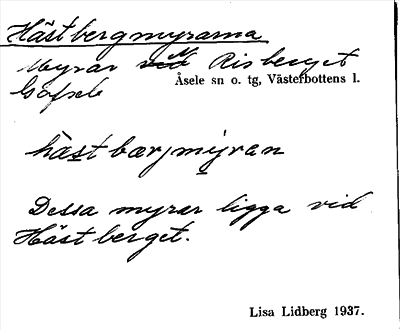 Hästbergmyrarna
Myrar N Risberget
Åsele sn o. tg, Västerbottens l.
hästbarjmyran
Dessa myrar ligga vid
Hästberget.
Lisa Lidberg 1937.